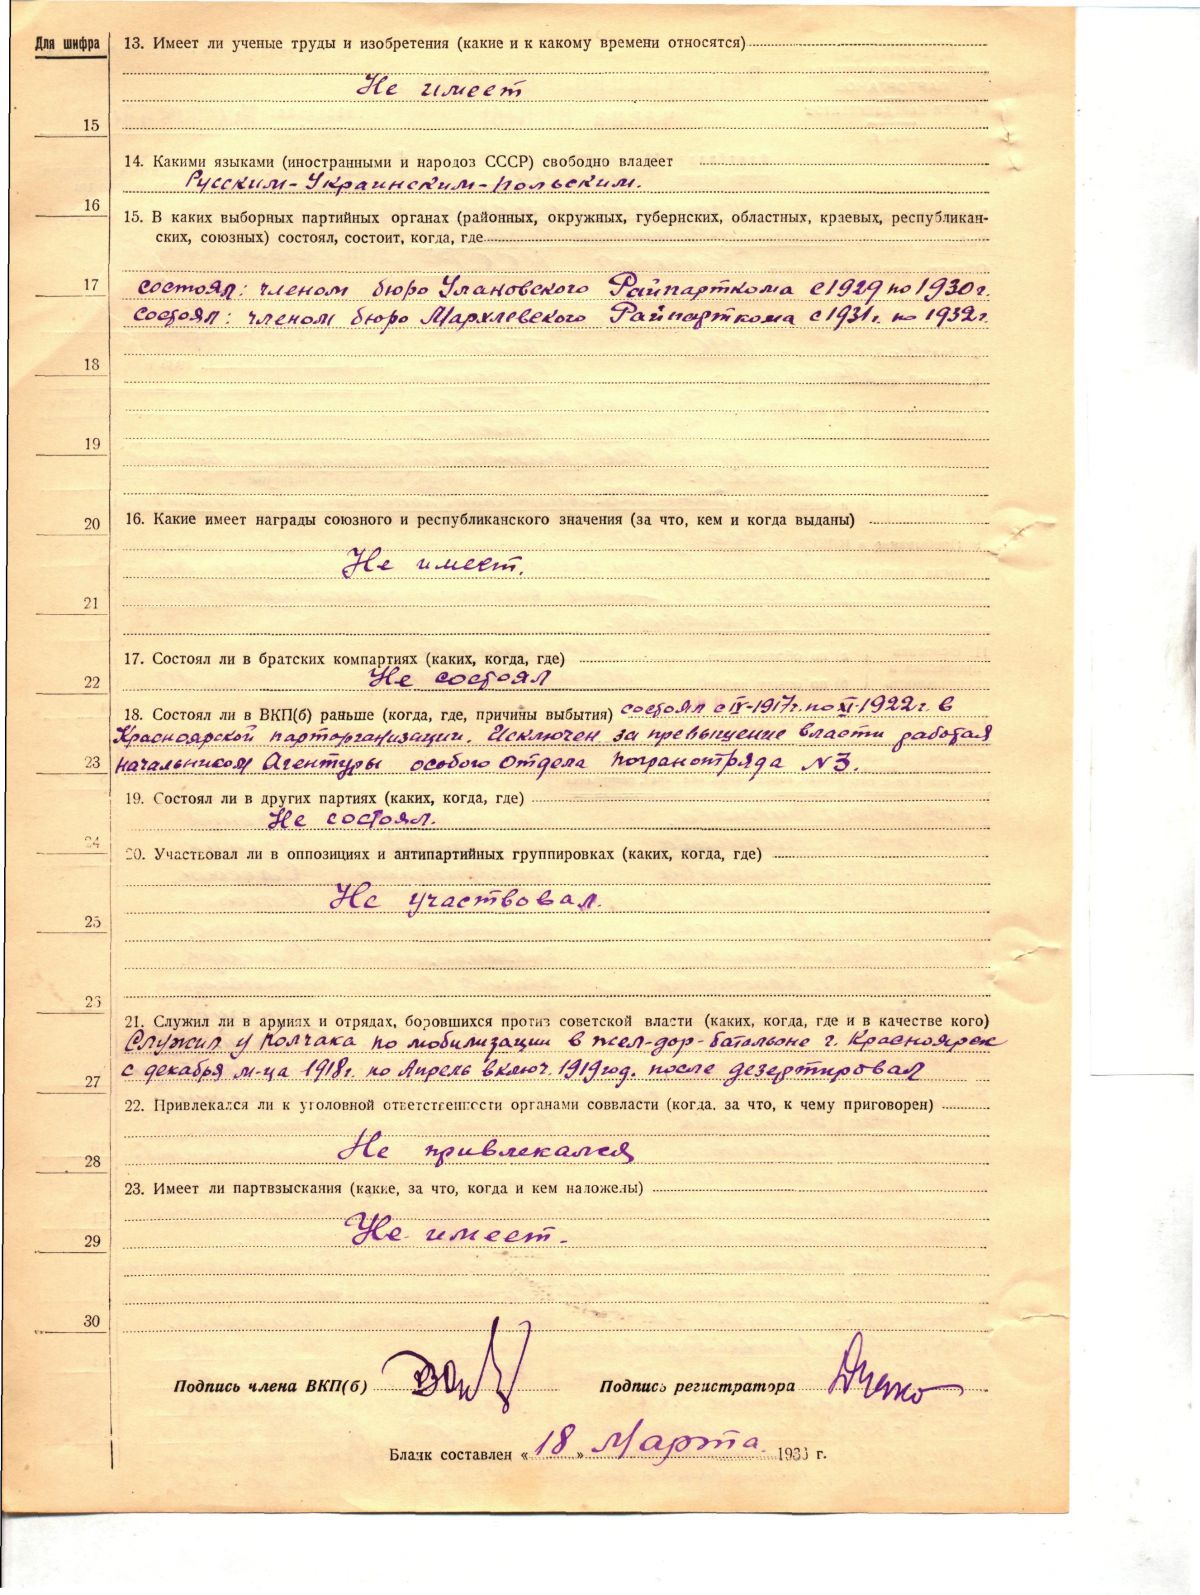 Для шифра
13. Имеет ли ученые труды и изобретения (какие и к какому времени относятся)
Не имеет
15
14. Какими языками (иностранными и народоз СССР) свободно владеет
Русским-Украинским-польским.
16
15. В каких выборных партийных органах (районных, окружных, губернских, областных, краевых, республикан-
ских, союзных) состоял, состоит, когда, где
17
состоял: членом бюро Улановского Райпарткома с 1929 по 1930 г.
состоял: членом бюро Мархлевского Райпарткома с 1931 г. по 1932 г.
18
19
20
16. Какие имеет награды союзного и республиканского значения (за что, кем и когда выданы)
Не имеет.
21
17. Состоял ли в братских компартиях (каких, когда, где)
Не состоял
22
18. Состоял ли в ВКП(б) раньше (когда, где, причины выбытия) состоял с IV-1917 г. по XI-1922 г. в
Красноярской парторганизации. Исключен за превышение власти работая
23
начальником Агентуры особого отдела погранотряда N 3.
19. Состоял ли в других партиях (каких, когда, где)
Не состоял.
24
20. Участвовал ли в оппозициях и антипартийных группировках (каких, когда, где)
Не участвовал.
25
26
21. Служил ли в армиях и отрядах, боровшихся против советской власти (каких, когда, где и в качестве кого)
Служил у Колчака по мобилизации в жел-дор-батальоне г. Красноярск
27
с декабря м-ца 1918 г. по Апрель включ. 1919 год. после дезертировал
22. Привлекался ли к уголовной ответственности органами соввласти (когда, за что, к чему приговорен)
Не привлекался
28
23. Имеет ли партвзыскания (какие, за что, когда и кем наложены)
Не имеет.
29
30
Подпись члена ВКП(б)
Подпись регистратора
Бланк составлен « 18 » Марта. 1936 г.